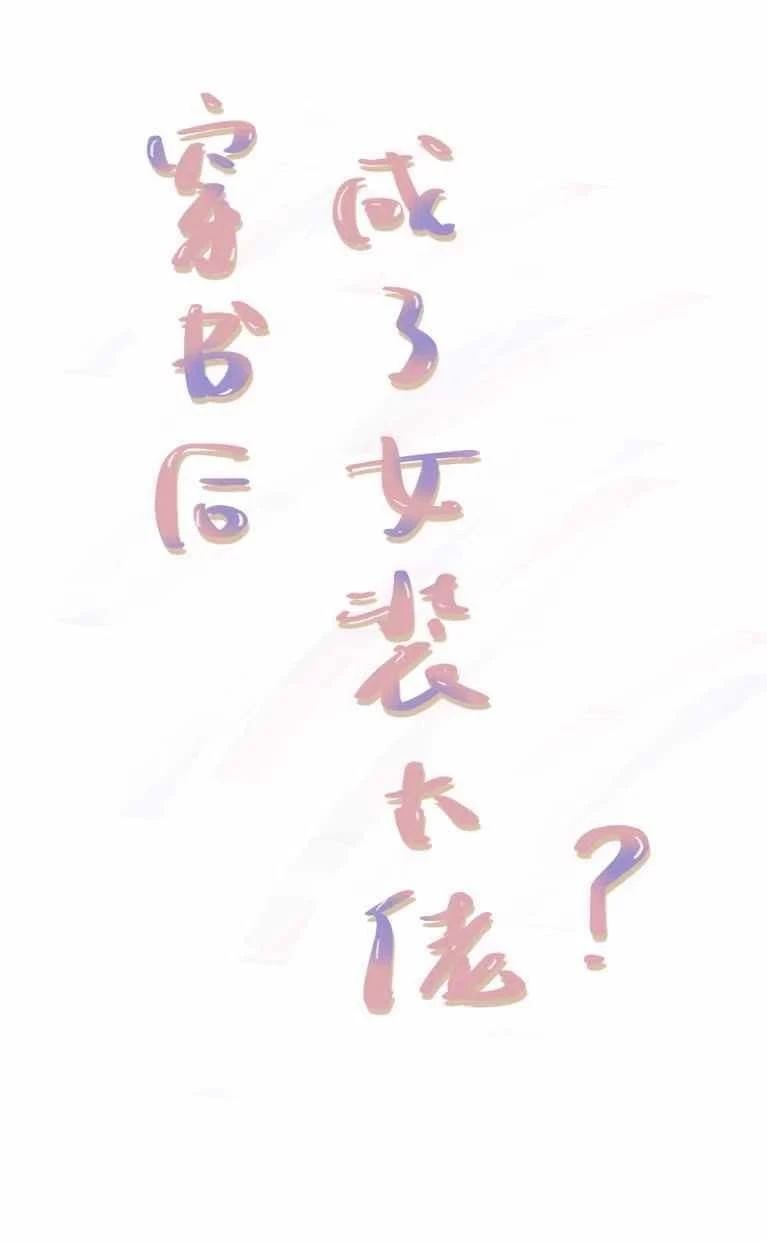 穿书后
成了女装大佬
?